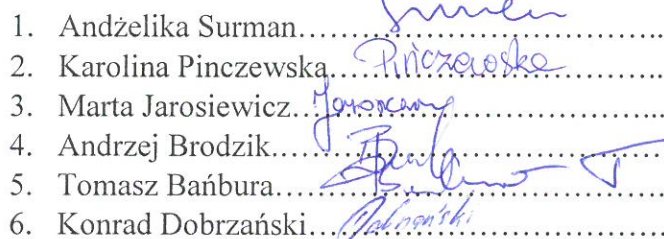 1. Andżelika Surman....................................
2. Karolina Pinczewska....Pińczewska....................
3. Marta Jarosiewicz....................................
4. Andrzej Brodzik....................................
5. Tomasz Bańbura....................................
6. Konrad Dobrzański...Dobrzański....................